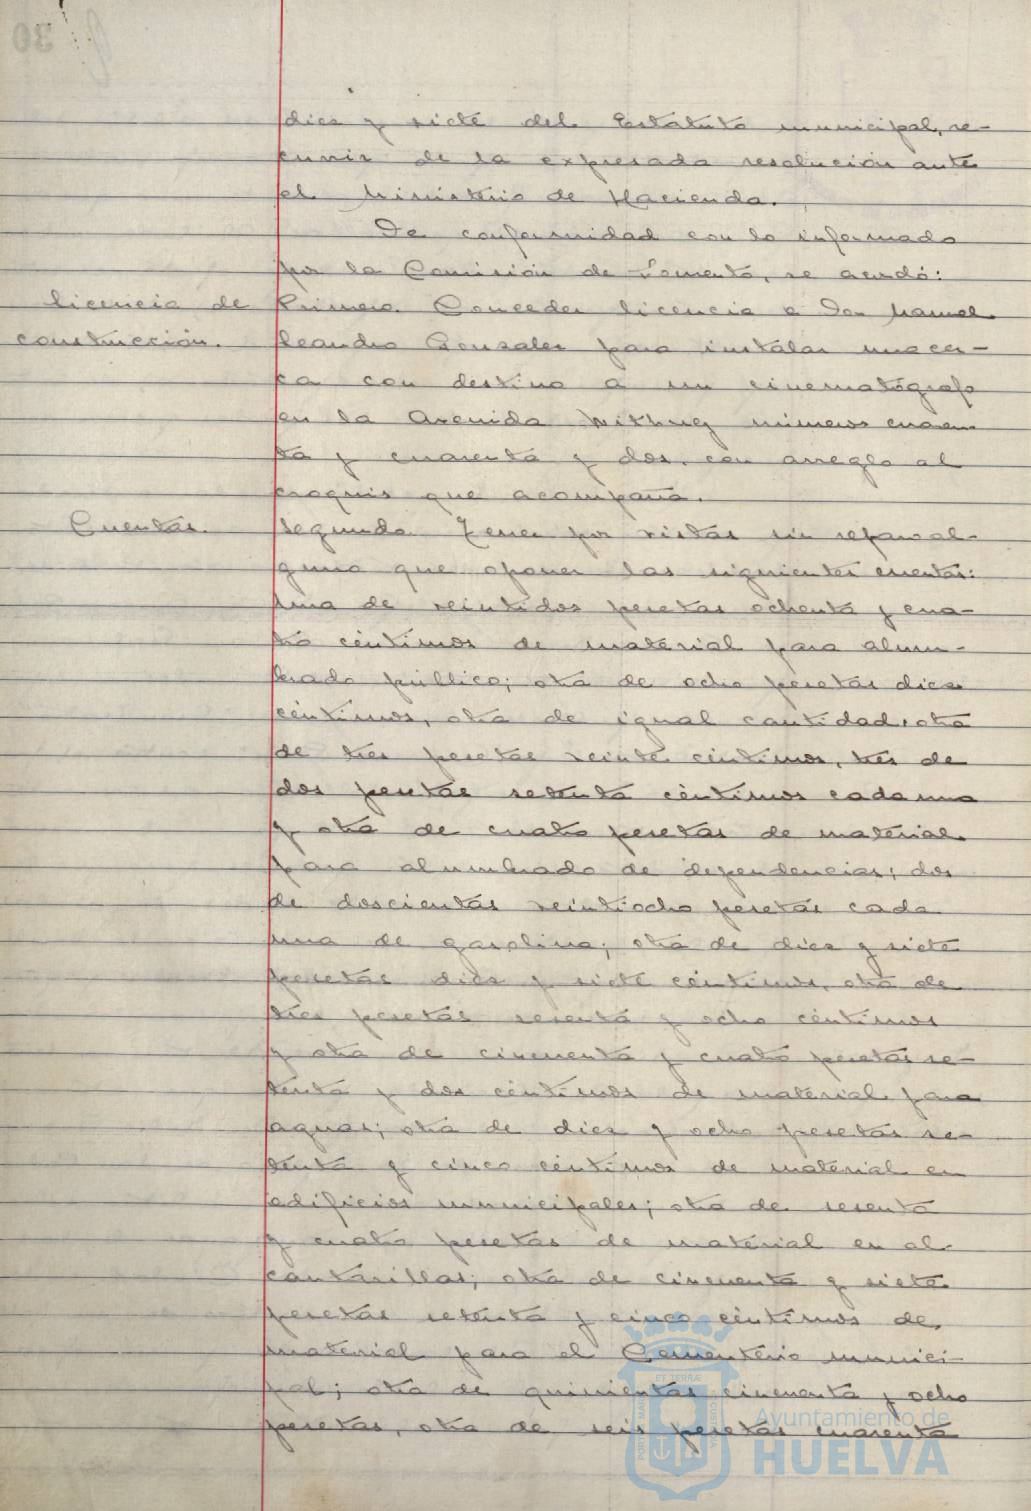 diez y siete del Estatuto municipal, re-
currir de la expresada resolución ante
el Ministerio de Hacienda.
De conformidad con lo informado
por la Comisión de Fomento, se acordó:
licencia de
construcción.
Primero. Conceder licencia a Don Manuel
Leandro Gonzalez para instalar una cer-
ca con destino a un cinematógrafo
en la Avenida números cuaren
ta y cuarenta y dos, con arreglo al
croquis que acompaña.
Cuentas.
Segundo. Tener por vistas sin reparo al-
guno que oponer las siguientes cuentas:
una de veintidos pesetas ochenta y cua-
tro céntimos de material para alum-
brado público; otra de ocho pesetas diez
céntimos, otra de igual cantidad, otra
de tres pesetas veinte céntimos, tres de
dos pesetas setenta céntimos cada una
y otra de cuatro pesetas de material
para alumbrado de dependencias; dos
de doscientas veintiocho pesetas cada
una de gasolina; otra de diez y siete
pesetas diez y siete céntimos, otra de
tres pesetas sesenta y ocho céntimos
y otra de cincuenta y cuatro pesetas se-
tenta y dos céntimos de material para
aguas; otra de diez y ocho pesetas se-
tenta y cinco céntimos de material en
edificios municipales; otra de sesenta
y cuatro pesetas de material en al-
cantarillas; otra de cincuenta y siete
pesetas setenta y cinco céntimos de
material para el Cementerio munici-
pal; otra de quinientas cincuenta y ocho
pesetas, otra de seis pesetas cuarenta
Ayuntamiento de
HUELVA